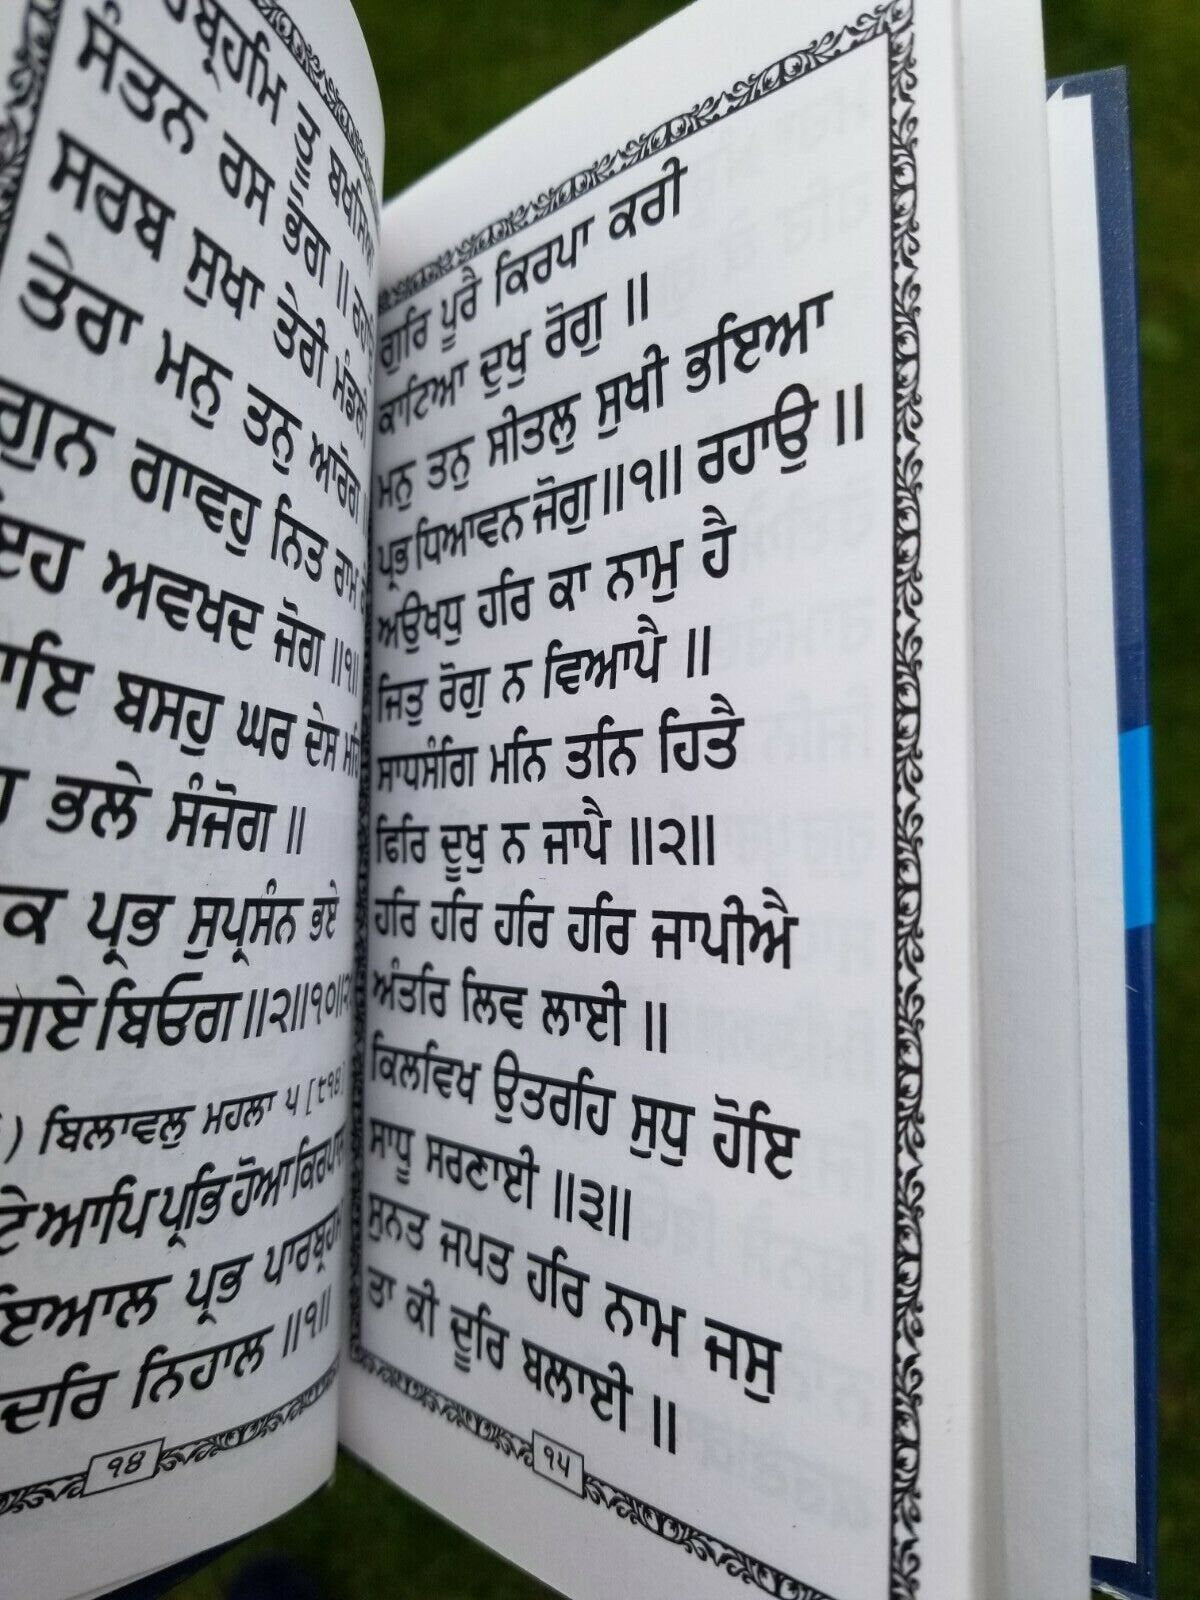 ਤੂ ਬਖਸਿਆ
ਸੰਤਨ ਰਸ ਭੋਗ ॥
ਸਰਬ ਸੁਖਾ ਤੇਰੀ ਮੰਡਲੀ
ਤੇਰਾ ਮਨੁ ਤਨੁ ਆਰੋਗ
ਗੁਨ ਗਾਵਹੁ ਨਿਤ ਰਾਮ
ਇਹ ਅਵਖਦ ਜੋਗ ॥੧॥
ਬਸਹੁ ਘਰ ਦੇਸ
ਭਲੇ ਸੰਜੋਗ ॥
ਪ੍ਰਭ ਸੁਪ੍ਰਸੰਨ ਭਏ
ਗਏ ਬਿਓਗ॥੨॥੧੦॥
) ਬਿਲਾਵਲੁ ਮਹਲਾ ੫ [੮੧੪]
ਆਪਿ ਪ੍ਰਭਿ ਹੋਆ
ਪ੍ਰਭ ਪਾਰਬ੍ਰਹਮ
ਨਿਹਾਲ ॥੧॥
੧੪
ਗੁਰਿ ਪੂਰੈ ਕਿਰਪਾ ਕਰੀ
ਕਾਟਿਆ ਦੁਖੁ ਰੋਗੁ ॥
ਮਨੁ ਤਨੁ ਸੀਤਲੁ ਸੁਖੀ ਭਇਆ
ਪ੍ਰਭ ਧਿਆਵਨ ਜੋਗੁ॥੧॥ ਰਹਾਉ ॥
ਅਉਖਧੁ ਹਰਿ ਕਾ ਨਾਮੁ ਹੈ
ਜਿਤੁ ਰੋਗੁ ਨ ਵਿਆਪੈ ॥
ਸਾਧਸੰਗਿ ਮਨਿ ਤਨਿ ਹਿਤੈ
ਫਿਰਿ ਦੂਖੁ ਨ ਜਾਪੈ ॥੨॥
ਹਰਿ ਹਰਿ ਹਰਿ ਹਰਿ ਜਾਪੀਐ
ਅੰਤਰਿ ਲਿਵ ਲਾਈ ॥
ਕਿਲਵਿਖ ਉਤਰਹਿ ਸੁਧੁ ਹੋਇ
ਸਾਧੂ ਸਰਣਾਈ ॥੩॥
ਸੁਨਤ ਜਪਤ ਹਰਿ ਨਾਮ ਜਸੁ
ਤਾ ਕੀ ਦੂਰਿ ਬਲਾਈ ॥
੧੫